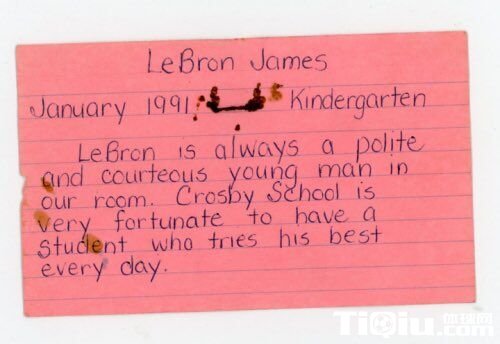 LeBron James
January 1991 Kindergarten
LeBron is always a polite
and courteous young man in
our room. Crosby School is
very fortunate to have a
student who tries his best
every day.
TiQiu.com
体球网